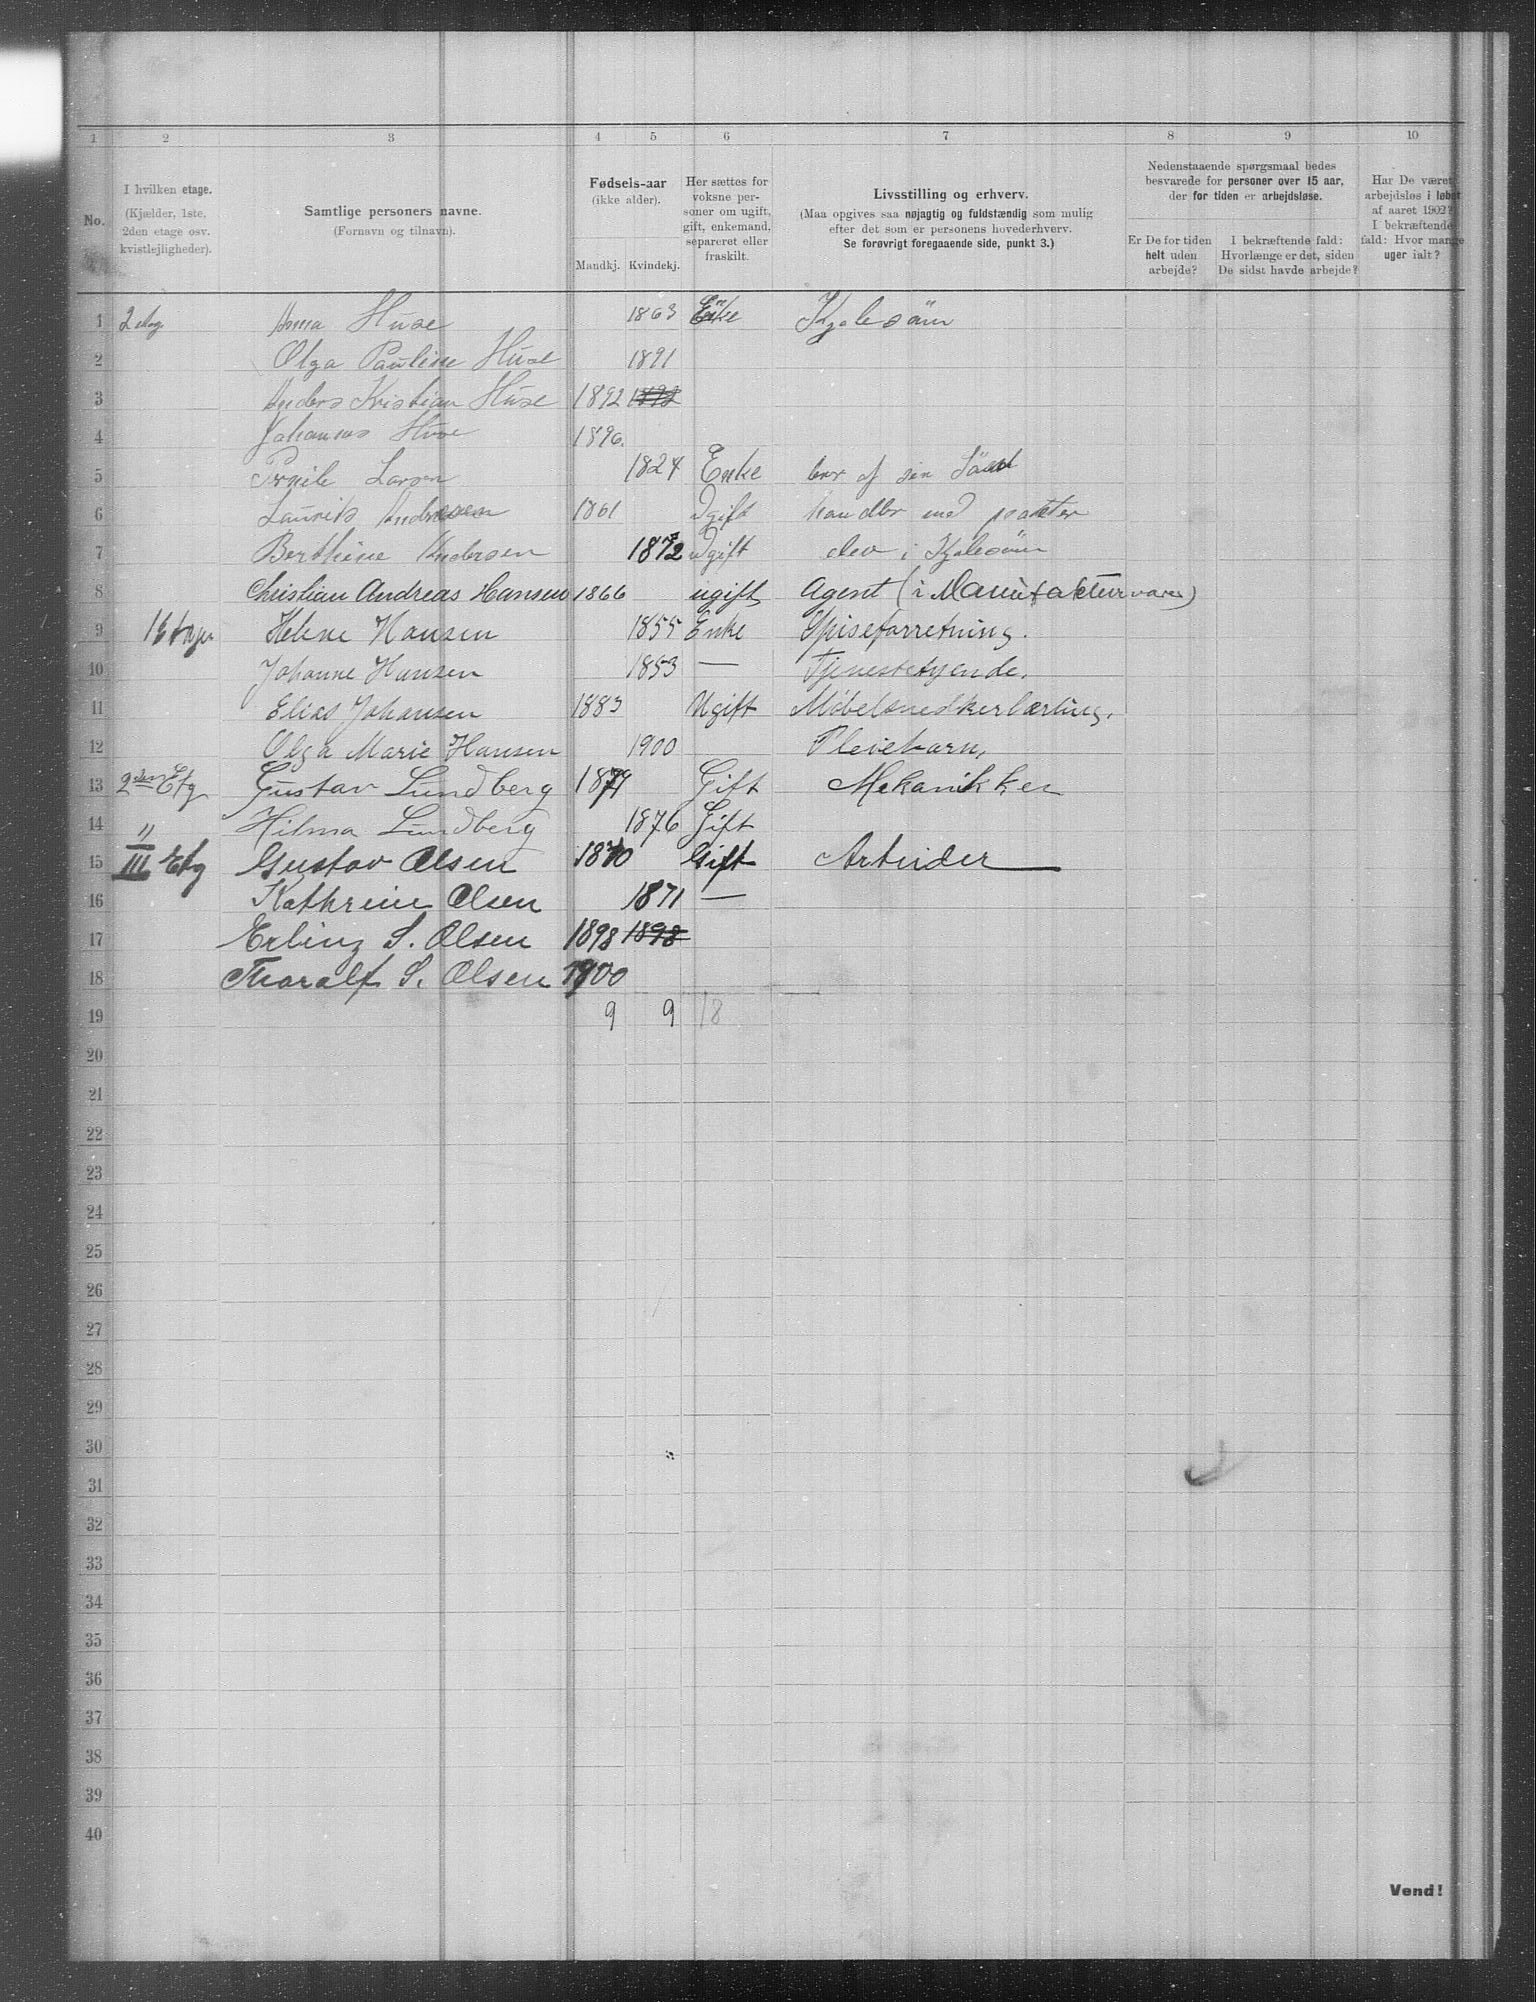 1 2 3 4 5 6 7 8 9 10
No.
I hvilken etage.
(Kjælder, 1ste,
2den etage osv.
kvistlejligheder).
Samtlige personers navne.
(Fornavn og tilnavn).
Fødsels-aar
(ikke alder).
Mandkj. Kvindekj.
Her sættes for
voksne per-
soner om ugift,
gift, enkemand,
separeret eller
fraskilt.
Livsstilling og erhverv.
(Maa opgives saa nøjagtig og fuldstændig som mulig
efter det som er personens hovederhverv.
Se forøvrigt foregaaende side, punkt 3.)
Nedenstaaende spørgsmaal bedes
besvarede for personer over 15 aar,
der for tiden er arbejdsløse.
Er De for tiden
helt uden
arbejde?
I bekræftende fald:
Hvorlænge er det, siden
De sidst havde arbejde?
Har De været
arbejdsløs i løbet
af aaret 1902?
I bekræftende
fald: Hvor mange
uger ialt?
1 2 etag Anna Huse 1863 Enke Kjolesöm
2 Olga Pauline Huse 1891
3 Anders Kristian Huse 1892 1892
4 Johannes Huse 1896.
5 Larsn 1824 Enke af sin
6 Laurits Andresen 1861 Ugift med
7 Berthine Andersen 1872 Ugift elev i Kjolesöm
8 Christian Andreas Hansen 1866 ugift Agent (i Manufakturvarer)
9 1 Etager Helene Hansen 1855 Enke Spiseforretning.
10 Johanne Hansen 1853 — Tjenestetyende.
11 Elias Johansen 1883 Ugift Møbelsnedkerlærling.
12 Olga Marie Hansen 1900 Pleiebarn,
13 2den Etg Gustav Lundberg 1879 Gift Mekanikker
14 " Hilma Lundberg 1876 Gift
15 III Etg Gustav Olsen 1870 Gift Arbeider
16 Kathrine Olsen 1871 —
17 Erling S. Olsen 1898 1898
18 Thoralf S. Olsen 1900
19 9 9 18
20
21
22
23
24
25
26
27
28
29
30
31
32
33
34
35
36
37
38
39
40
Vend!